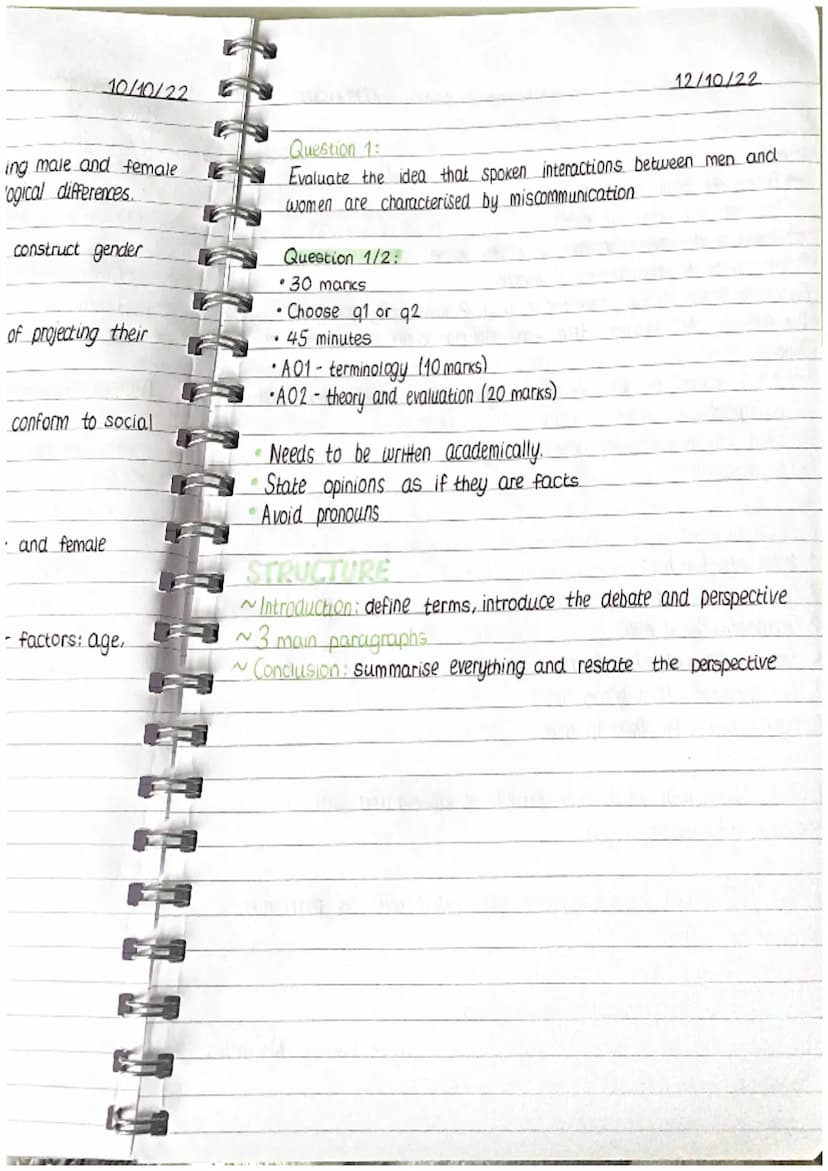 10/10/22
ing male and female
ogical differences.
construct gender
of projecting their
conform to social
and female
factors: age,
12/10/22
Question 1:
Evaluate the idea that spoken interactions between men and
women are characterised by miscommunication
Question 1/2:
• 30 marks
• Choose q1 or q2
• 45 minutes
• AO1 - terminology (10 marks)
• AO2 - theory and evaluation (20 marks)
• Needs to be written academically.
• State opinions as if they are facts
• Avoid pronouns
STRUCTURE
~ Introduction: define terms, introduce the debate and perspective
~ 3 main paragraphs
~ Conclusion: summarise everything and restate the perspective